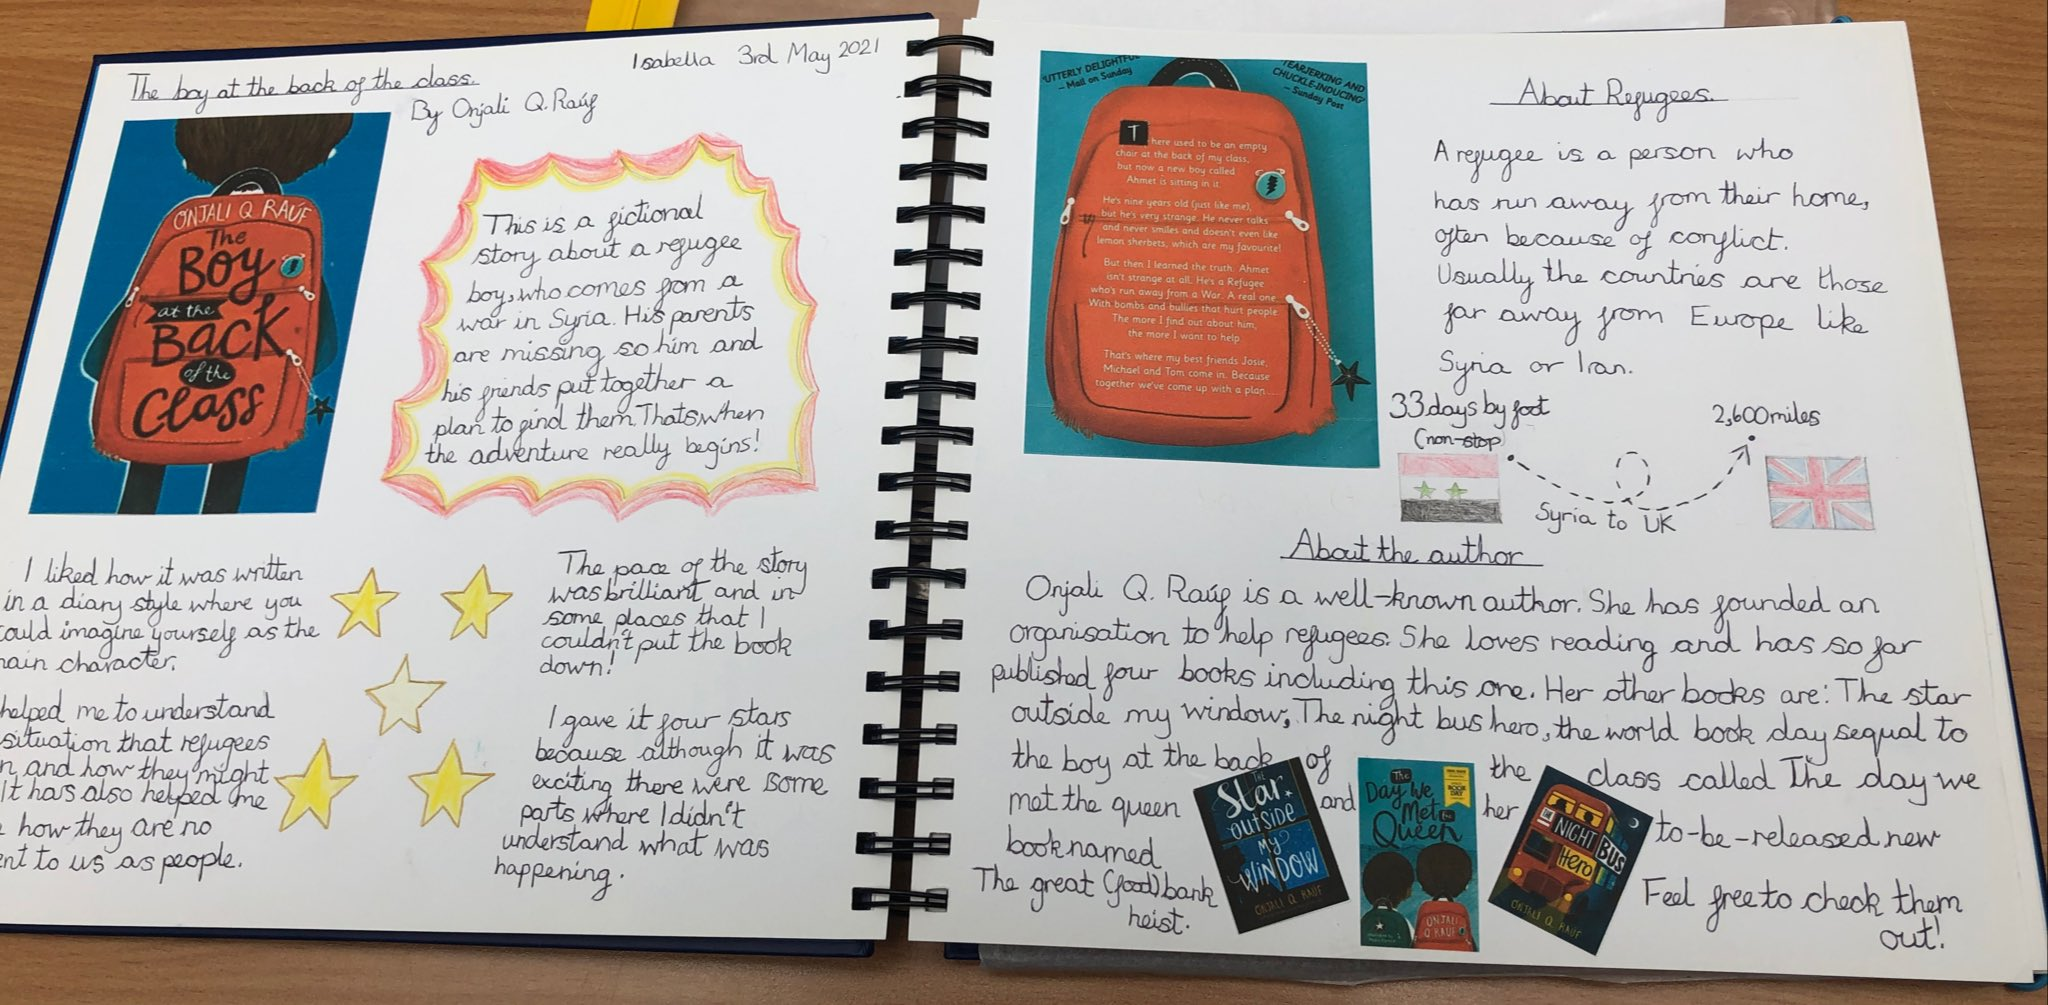 Isabella 3rd May 2021
The boy at the back of the class.
By Onjali Q. Raúf
ONJALI Q RAÚF
The
Boy
at the
Back
of the
Class
This is a fictional
story about a refugee
boy, who comes from a
war in Syria. His parents
are missing so him and
his friends put together a
plan to find them. Thats when
the adventure really begins!
I liked how it was written
in a diary style where you
could imagine yourself as the
main character.
helped me to understand
situation that refugees
and how they might
It has also helped me
how they are no
to us as people.
The pace of the story
was brilliant and in
some places that I
couldn't put the book
down!
I gave it four stars
because although it was
exciting there were some
parts where I didn't
understand what was
happening.
'UTTERLY DELIGHTFUL'
– Mail on Sunday
'TEARJERKING AND
CHUCKLE-INDUCING'
– Sunday Post
There used to be an empty
chair at the back of my class,
but now a new boy called
Ahmet is sitting in it.
He's nine years old (just like me),
but he's very strange. He never talks
and never smiles and doesn't even like
lemon sherbets, which are my favourite!
But then I learned the truth. Ahmet
isn't strange at all. He's a Refugee
who's run away from a War. A real one.
With bombs and bullies that hurt people
The more I find out about him,
the more I want to help
That's where my best friends Josie,
Michael and Tom come in. Because
together we've come up with a plan...
About Refugees.
A refugee is a person who
has run away from their home,
often because of conflict.
Usually the countries are those
far away from Europe like
Syria or Iran.
33 days by foot
(non-stop)
2,600 miles
Syria to UK
About the author
Onjali Q. Raúf is a well-known author. She has founded an
organisation to help refugees. She loves reading and has so far
published four books including this one. Her other books are: The star
outside my window, The night bus hero, the world book day sequal to
the boy at the back of the class called The day we
met the queen and her to-be-released new
book named
The great (food) bank
heist.
Feel free to check them
out!
THE
Star
outside
my
WINDOW
ONJALI Q RAÚF
The
Day We
Met the
Queen
WORLD
BOOK
DAY
ONJALI
Q RAÚF
THE
NIGHT
BUS
HERO
ONJALI Q RAÚF